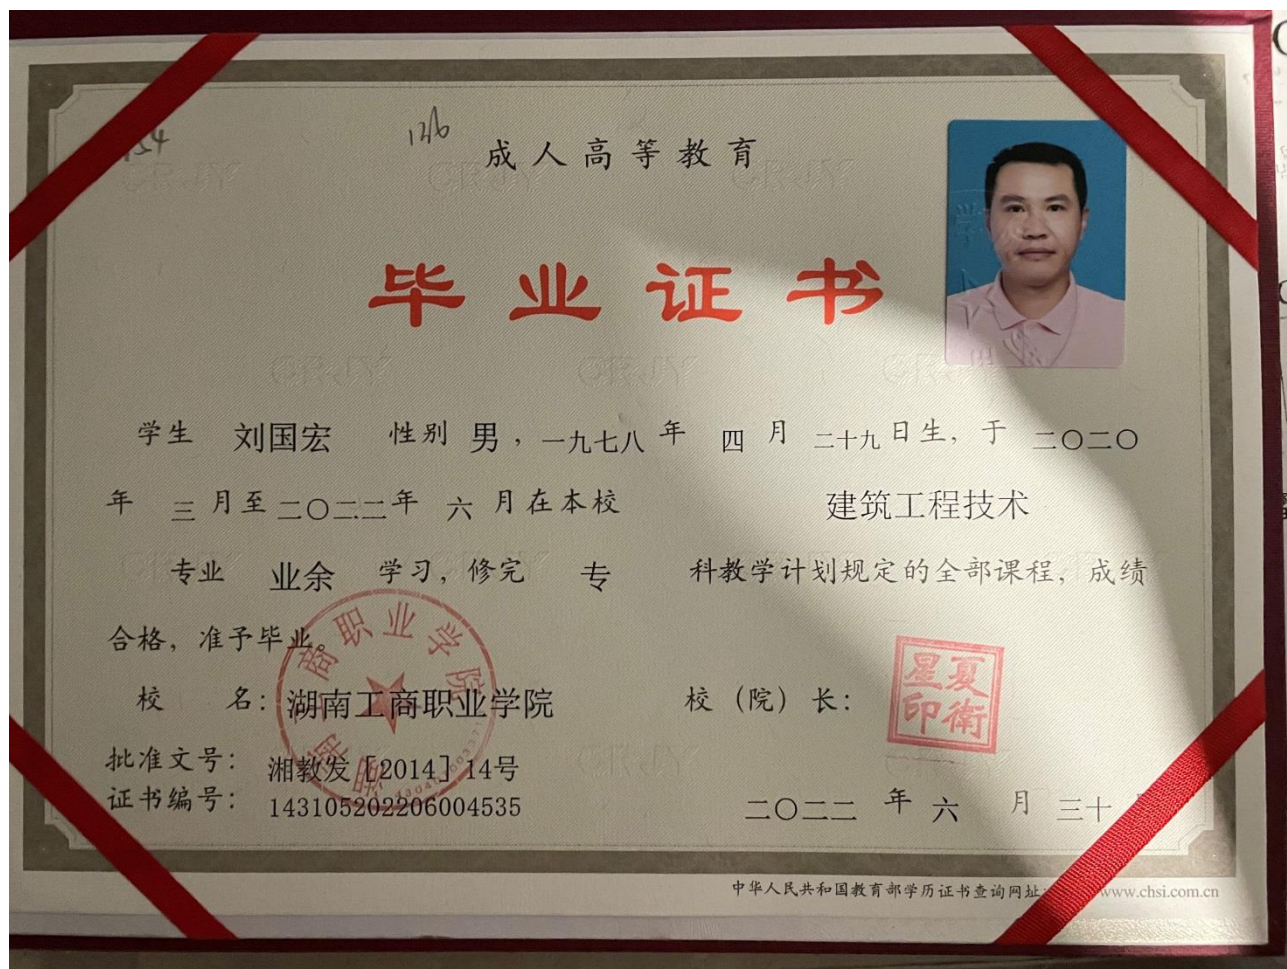 136
成人高等教育
毕业证书
学生 刘国宏 性别 男，一九七八年 四 月 二十九日生，于 二〇二〇
年 三 月至二〇二二年 六 月在本校 建筑工程技术
专业 业余 学习，修完 专 科教学计划规定的全部课程，成绩
合格，准予毕业。
校 名：湖南工商职业学院 校（院）长：
星夏
印衛
湖南工商职业学院
批准文号： 湘教发［2014］14号
证书编号： 143105202206004535
二〇二二 年 六 月 三十
中华人民共和国教育部学历证书查询网址 www.chsi.com.cn
CRJY CRJY CRJY
CRJY CRJY CRJY